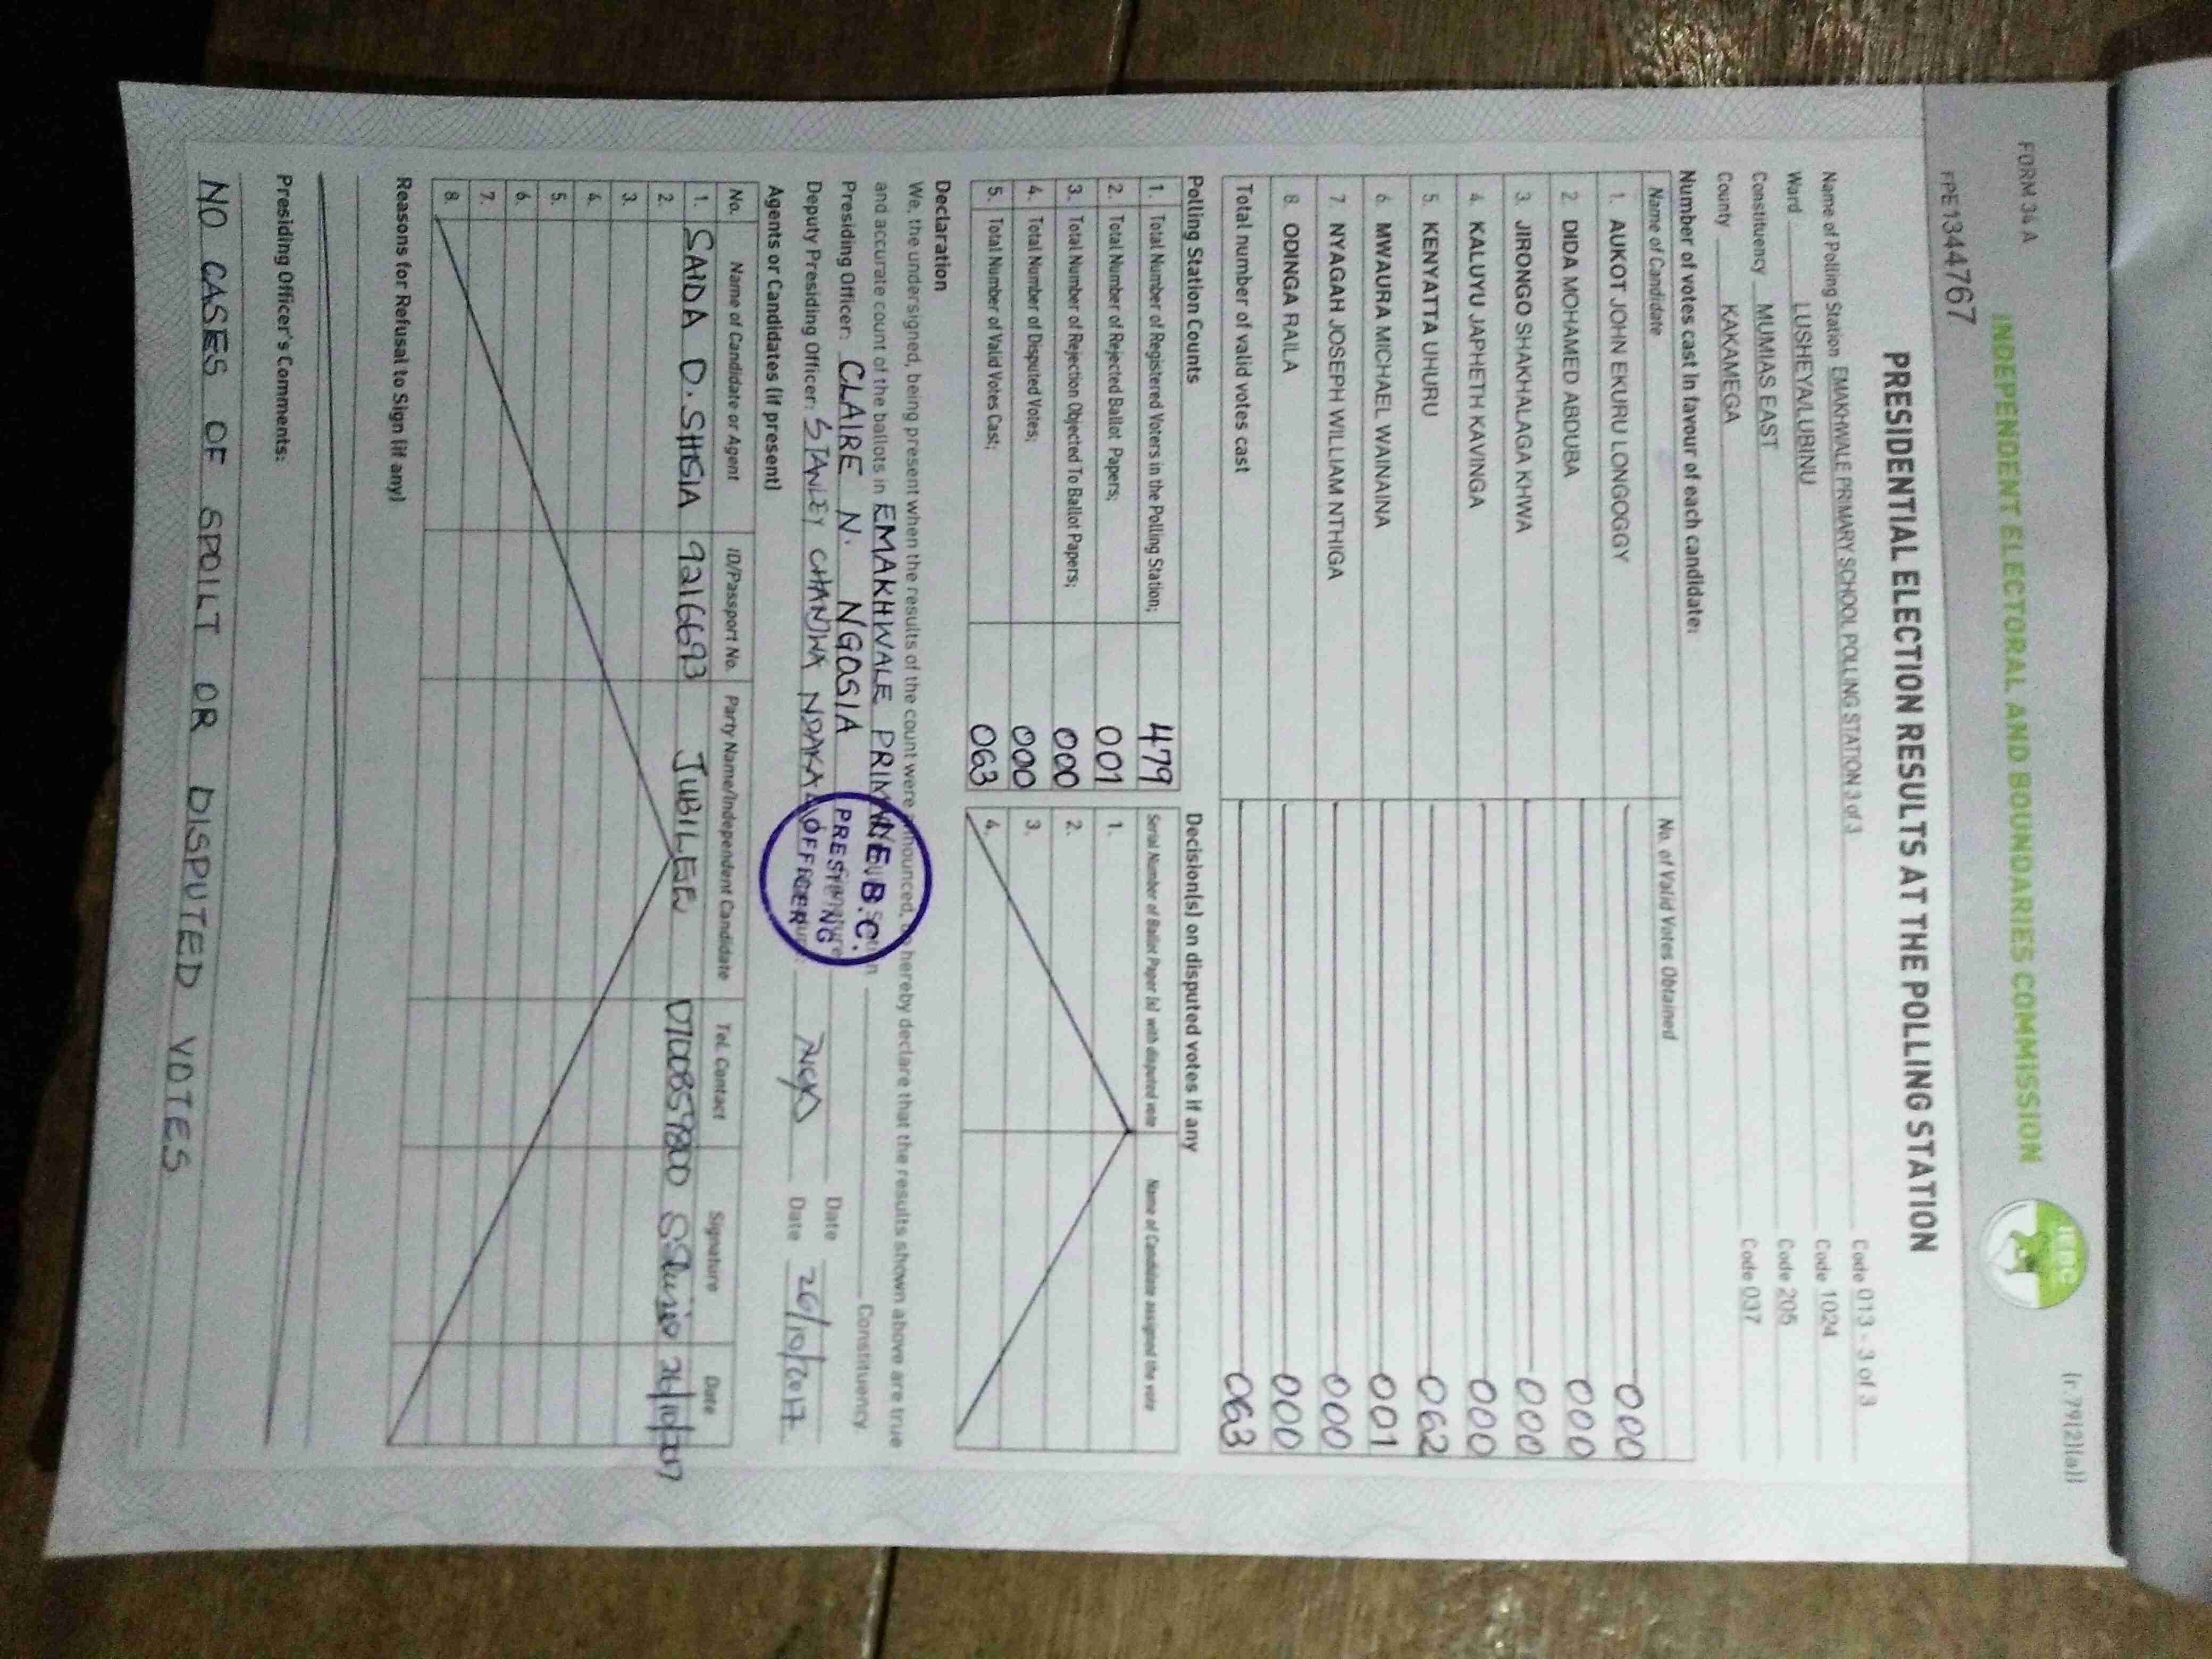 FORM 34 A
(r.79(2)(a))
INDEPENDENT ELECTORAL AND BOUNDARIES COMMISSION
IEBC
FPE1344767
PRESIDENTIAL ELECTION RESULTS AT THE POLLING STATION
Name of Polling Station EMAKHWALE PRIMARY SCHOOL POLLING STATION 3 of 3 Code 013 - 3 of 3
Ward LUSHEYA/LUBINU Code 1024
Constituency MUMIAS EAST Code 205
County KAKAMEGA Code 037
Number of votes cast in favour of each candidate:
Name of Candidate No. of Valid Votes Obtained
1. AUKOT JOHN EKURU LONGOGGY 000
2. DIDA MOHAMED ABDUBA 000
3. JIRONGO SHAKHALAGA KHWA 000
4. KALUYU JAPHETH KAVINGA 000
5. KENYATTA UHURU 062
6. MWAURA MICHAEL WAINAINA 001
7. NYAGAH JOSEPH WILLIAM NTHIGA 000
8. ODINGA RAILA 000
Total number of valid votes cast 063
Polling Station Counts
1. Total Number of Registered Voters in the Polling Station; 479
2. Total Number of Rejected Ballot Papers; 001
3. Total Number of Rejection Objected To Ballot Papers; 000
4. Total Number of Disputed Votes; 000
5. Total Number of Valid Votes Cast; 063
Decision(s) on disputed votes if any
Serial Number of Ballot Paper (s) with disputed vote Name of Candidate assigned the vote
1.
2.
3.
4.
Declaration
We, the undersigned, being present when the results of the count were announced, do hereby declare that the results shown above are true
and accurate count of the ballots in EMAKHWALE PRIMARY Constituency
Presiding Officer: CLAIRE N. NGOSIA Date
Deputy Presiding Officer: STANLEY CHANWA NDAKALU Date 26/10/2017
I.E.B.C.
PRESIDING
OFFICER
Agents or Candidates (if present)
No. Name of Candidate or Agent ID/Passport No. Party Name/Independent Candidate Tel. Contact Signature Date
1. SAIDA D. SHISIA 9216693 JUBILEE 0700859800 26/10/2017
2.
3.
4.
5.
6.
7.
8.
Reasons for Refusal to Sign (if any)
Presiding Officer's Comments:
NO CASES OF SPOILT OR DISPUTED VOTES